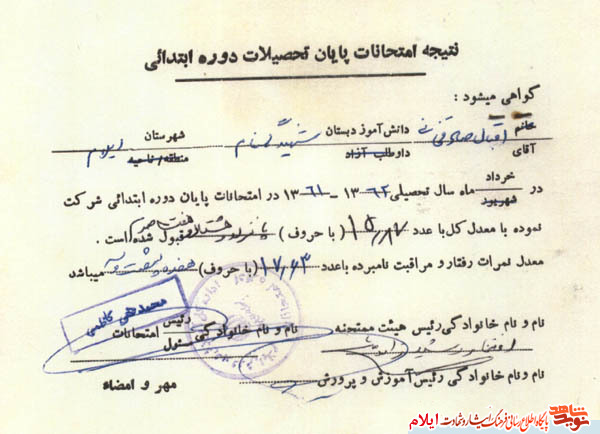 نتیجه امتحانات پایان تحصیلات دوره ابتدائی
گواهی میشود :
خانم
آقای اقبال صادقی دانش‌آموز دبستان شهید گمنام شهرستان ایلام
داوطلب آزاد منطقه/ناحیه
در خرداد ماه سال تحصیلی ۶۲-۱۳ - ۶۱-۱۳ در امتحانات پایان دوره ابتدائی شرکت
شهریور
نموده با معدل کل با عدد ( با حروف ) پانزده قبول شده/است .
معدل نمرات رفتار و مراقبت نامبرده با عدد ۱۷/۶۳ ( با حروف ) هفده میباشد
محمدتقی کاظمی
نام و نام خانوادگی رئیس هیئت ممتحنه نام و نام خانوادگی رئیس امتحانات
مسئول
نام و نام خانوادگی رئیس آموزش و پرورش مهر و امضاء
نوید شاهد پایگاه اطلاع رسانی فرهنگ ایثار و شهادت ایلام